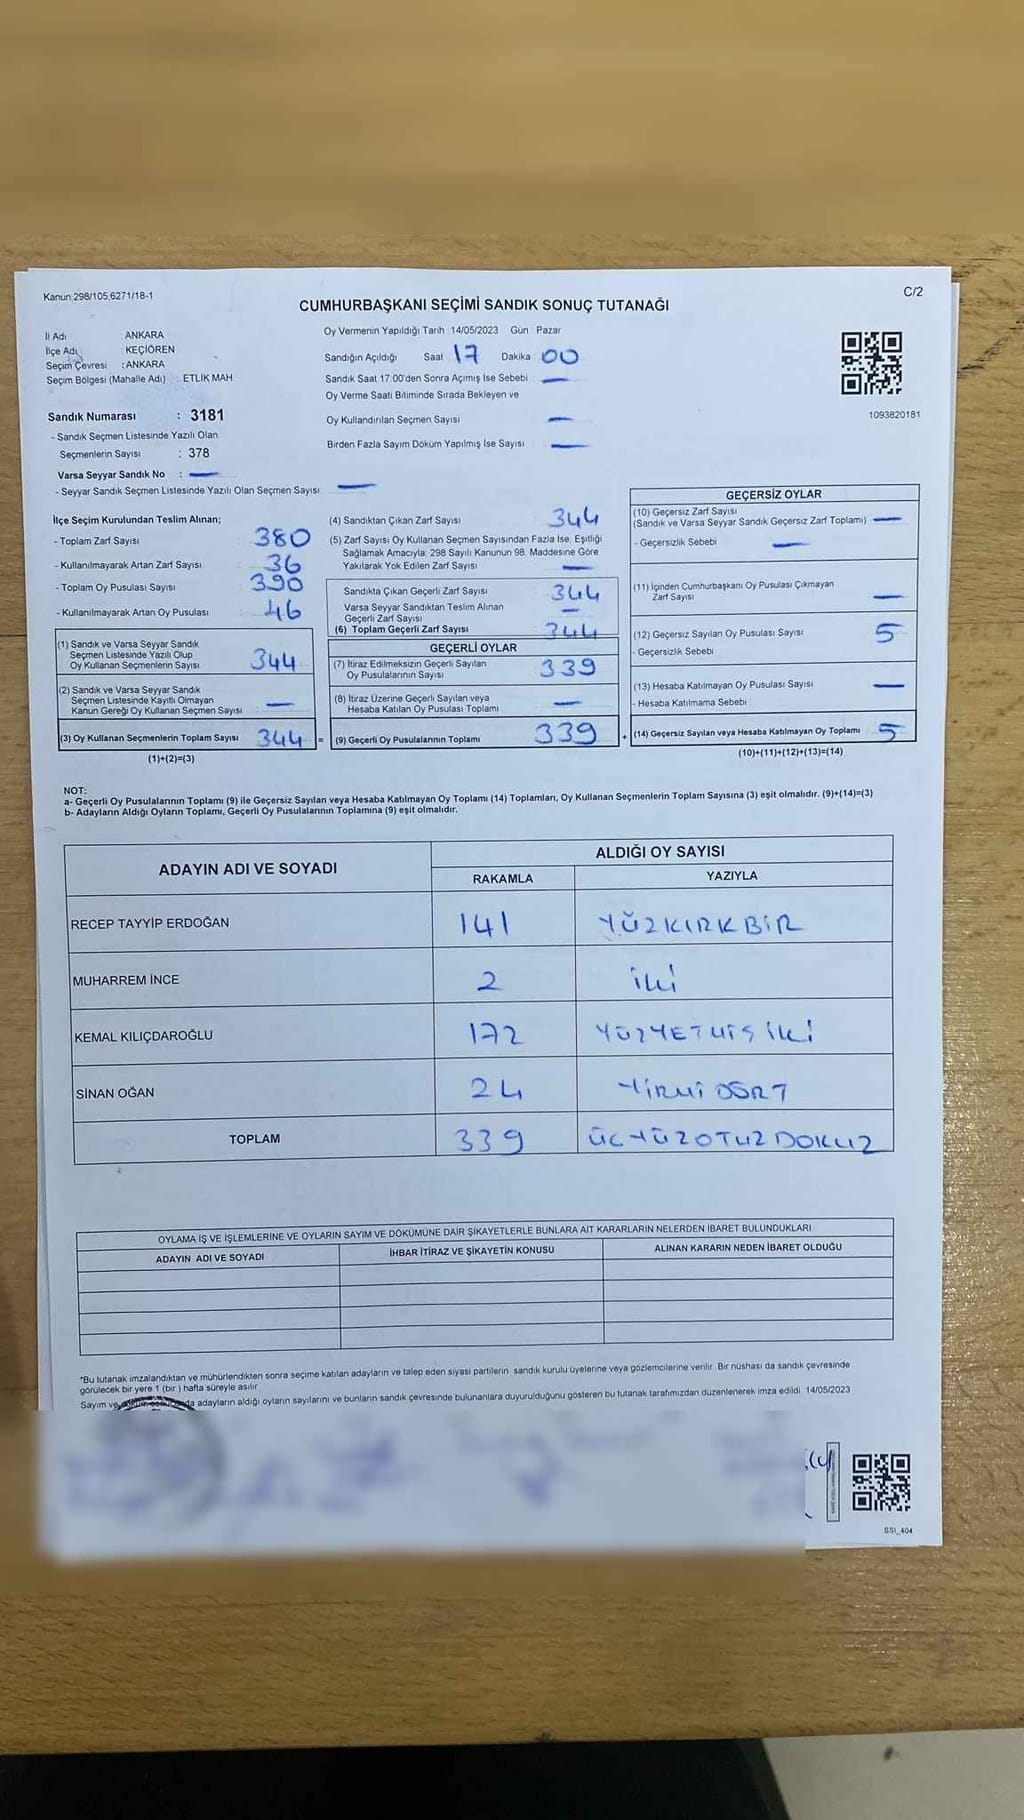 Kanun;298/105,6271/18-1
C/2
CUMHURBAŞKANI SEÇİMİ SANDIK SONUÇ TUTANAĞI
İl Adı : ANKARA
İlçe Adı : KEÇİÖREN
Seçim Çevresi : ANKARA
Seçim Bölgesi (Mahalle Adı) : ETLİK MAH
Sandık Numarası : 3181
- Sandık Seçmen Listesinde Yazılı Olan
Seçmenlerin Sayısı : 378
Varsa Seyyar Sandık No : —
- Seyyar Sandık Seçmen Listesinde Yazılı Olan Seçmen Sayısı —
Oy Vermenin Yapıldığı Tarih 14/05/2023 Gün Pazar
Sandığın Açıldığı Saat 17 Dakika 00
Sandık Saat 17:00'den Sonra Açımış İse Sebebi —
Oy Verme Saati Bitiminde Sırada Bekleyen ve
Oy Kullandırılan Seçmen Sayısı —
Birden Fazla Sayım Döküm Yapılmış İse Sayısı —
1093820181
İlçe Seçim Kurulundan Teslim Alınan;
- Toplam Zarf Sayısı 380
- Kullanılmayarak Artan Zarf Sayısı 36
- Toplam Oy Pusulası Sayısı 390
- Kullanılmayarak Artan Oy Pusulası 46
(1) Sandık ve Varsa Seyyar Sandık
Seçmen Listesinde Yazılı Olup
Oy Kullanan Seçmenlerin Sayısı 344
(2) Sandık ve Varsa Seyyar Sandık
Seçmen Listesinde Kayıtlı Olmayan
Kanun Gereği Oy Kullanan Seçmen Sayısı —
(3) Oy Kullanan Seçmenlerin Toplam Sayısı 344 =
(1)+(2)=(3)
(4) Sandıktan Çıkan Zarf Sayısı 344
(5) Zarf Sayısı Oy Kullanan Seçmen Sayısından Fazla İse, Eşitliği
Sağlamak Amacıyla; 298 Sayılı Kanunun 98. Maddesine Göre
Yakılarak Yok Edilen Zarf Sayısı —
Sandıkta Çıkan Geçerli Zarf Sayısı 344
Varsa Seyyar Sandıktan Teslim Alınan
Geçerli Zarf Sayısı —
(6) Toplam Geçerli Zarf Sayısı 344
GEÇERLİ OYLAR
(7) İtiraz Edilmeksizin Geçerli Sayılan
Oy Pusulalarının Sayısı 339
(8) İtiraz Üzerine Geçerli Sayılan veya
Hesaba Katılan Oy Pusulası Toplamı —
(9) Geçerli Oy Pusulalarının Toplamı 339 +
GEÇERSİZ OYLAR
(10) Geçersiz Zarf Sayısı
(Sandık ve Varsa Seyyar Sandık Geçersiz Zarf Toplamı) —
- Geçersizlik Sebebi —
(11) İçinden Cumhurbaşkanı Oy Pusulası Çıkmayan
Zarf Sayısı —
(12) Geçersiz Sayılan Oy Pusulası Sayısı 5
- Geçersizlik Sebebi
(13) Hesaba Katılmayan Oy Pusulası Sayısı —
- Hesaba Katılmama Sebebi
(14) Geçersiz Sayılan veya Hesaba Katılmayan Oy Toplamı 5
(10)+(11)+(12)+(13)=(14)
NOT:
a- Geçerli Oy Pusulalarının Toplamı (9) ile Geçersiz Sayılan veya Hesaba Katılmayan Oy Toplamı (14) Toplamları, Oy Kullanan Seçmenlerin Toplam Sayısına (3) eşit olmalıdır. (9)+(14)=(3)
b- Adayların Aldığı Oyların Toplamı, Geçerli Oy Pusulalarının Toplamına (9) eşit olmalıdır.
ADAYIN ADI VE SOYADI ALDIĞI OY SAYISI
RAKAMLA YAZIYLA
RECEP TAYYİP ERDOĞAN 141 YÜZKIRKBİR
MUHARREM İNCE 2 İKİ
KEMAL KILIÇDAROĞLU 172 YÜZYETMİŞ İKİ
SİNAN OĞAN 24 YİRMİ DÖRT
TOPLAM 339 ÜÇYÜZOTUZ DOKUZ
OYLAMA İŞ VE İŞLEMLERİNE VE OYLARIN SAYIM VE DÖKÜMÜNE DAİR ŞİKAYETLERLE BUNLARA AİT KARARLARIN NELERDEN İBARET BULUNDUKLARI
ADAYIN ADI VE SOYADI İHBAR İTİRAZ VE ŞİKAYETİN KONUSU ALINAN KARARIN NEDEN İBARET OLDUĞU
*Bu tutanak imzalandıktan ve mühürlendikten sonra seçime katılan adayların ve talep eden siyasi partilerin sandık kurulu üyelerine veya gözlemcilerine verilir. Bir nüshası da sandık çevresinde
görülecek bir yere 1 (bir ) hafta süreyle asılır.
Sayım ve adayların aldığı oyların sayılarını ve bunların sandık çevresinde bulunanlara duyurulduğunu gösteren bu tutanak tarafımızdan düzenlenerek imza edildi. 14/05/2023
SSI_404